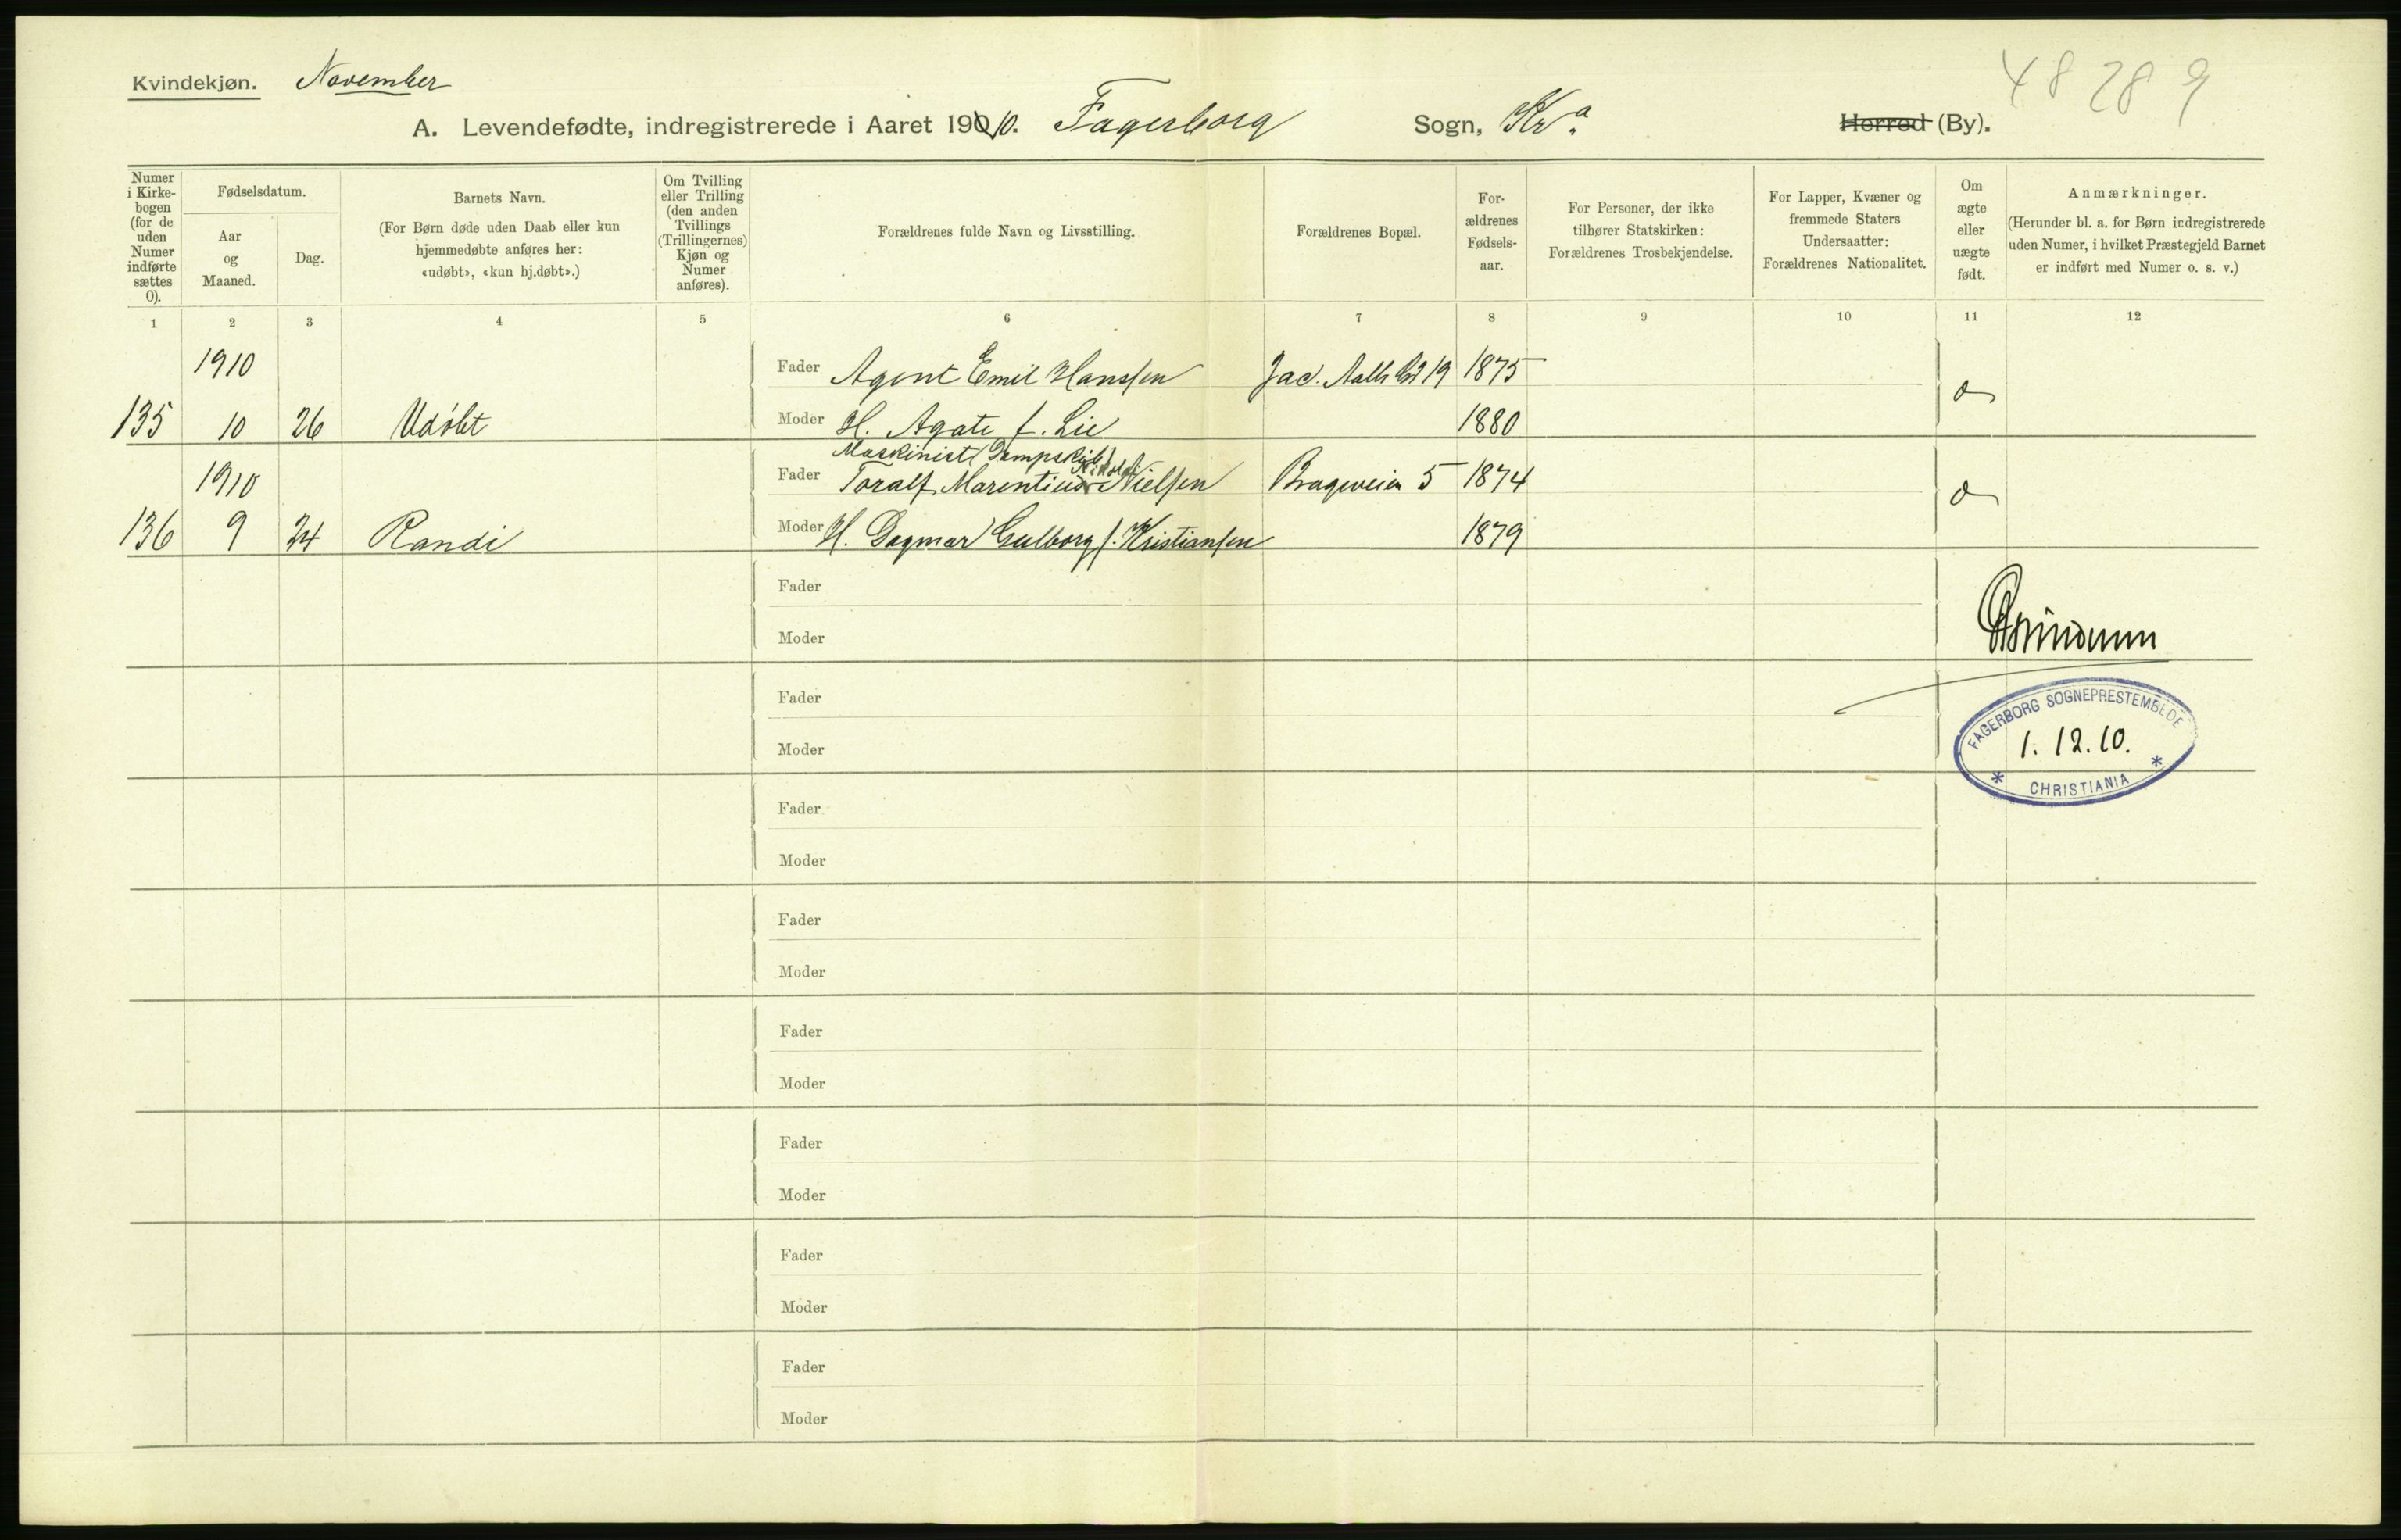 Kvindekjøn. November
48 28 9
A. Levendefødte, indregistrerede i Aaret 1910. Fagerborg Sogn, Kr.a Herred (By).
Numer i Kirkebogen (for de uden Numer indførte sættes 0).
Fødselsdatum.
Aar og Maaned.
Dag.
Barnets Navn.
(For Børn døde uden Daab eller kun hjemmedøbte anføres her: «udøbt», «kun hj.døbt».)
Om Tvilling eller Trilling (den anden Tvillings (Trillingernes) Kjøn og Numer anføres).
Forældrenes fulde Navn og Livsstilling.
Forældrenes Bopæl.
Forældrenes Fødselsaar.
For Personer, der ikke tilhører Statskirken: Forældrenes Trosbekjendelse.
For Lapper, Kvæner og fremmede Staters Undersaatter: Forældrenes Nationalitet.
Om ægte eller uægte født.
Anmærkninger.
(Herunder bl. a. for Børn indregistrerede uden Numer, i hvilket Præstegjeld Barnet er indført med Numer o. s. v.)
1 2 3 4 5 6 7 8 9 10 11 12
1910 Fader Agent Emil Hanssen Jac. Aalls Gd 19 1875
135 10 26 Udøbt Moder H. Agate f. Lie 1880
Maskinist (Dampskib)
1910 Fader Toralf Marentius Nielsen Brageveien 5 1874
136 9 24 Randi Moder H. Dagmar Gulborg f. Kristiansen 1879
Fader
Moder
Fader
Moder
FAGERBORG SOGNEPRESTEMBEDE
1. 12. 10.
* CHRISTIANIA *
Fader
Moder
Fader
Moder
Fader
Moder
Fader
Moder
Fader
Moder
Fader
Moder